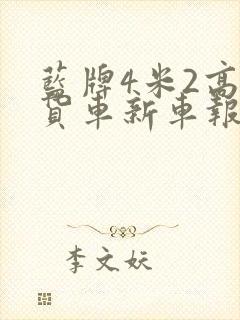 藍牌4米2高
貨車新車報
李文妖